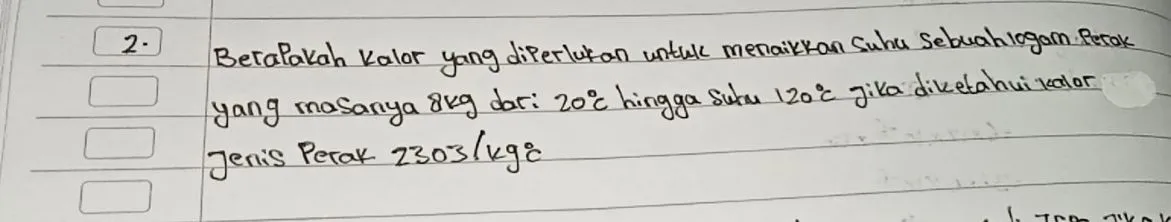 2. Berapakah kalor yang diperlukan untuk menaikkan suhu sebuah logam perak
yang masanya 8kg dari 20°c hingga suhu 120°c jika diketahui kalor
Jenis Perak 230J/kg°c